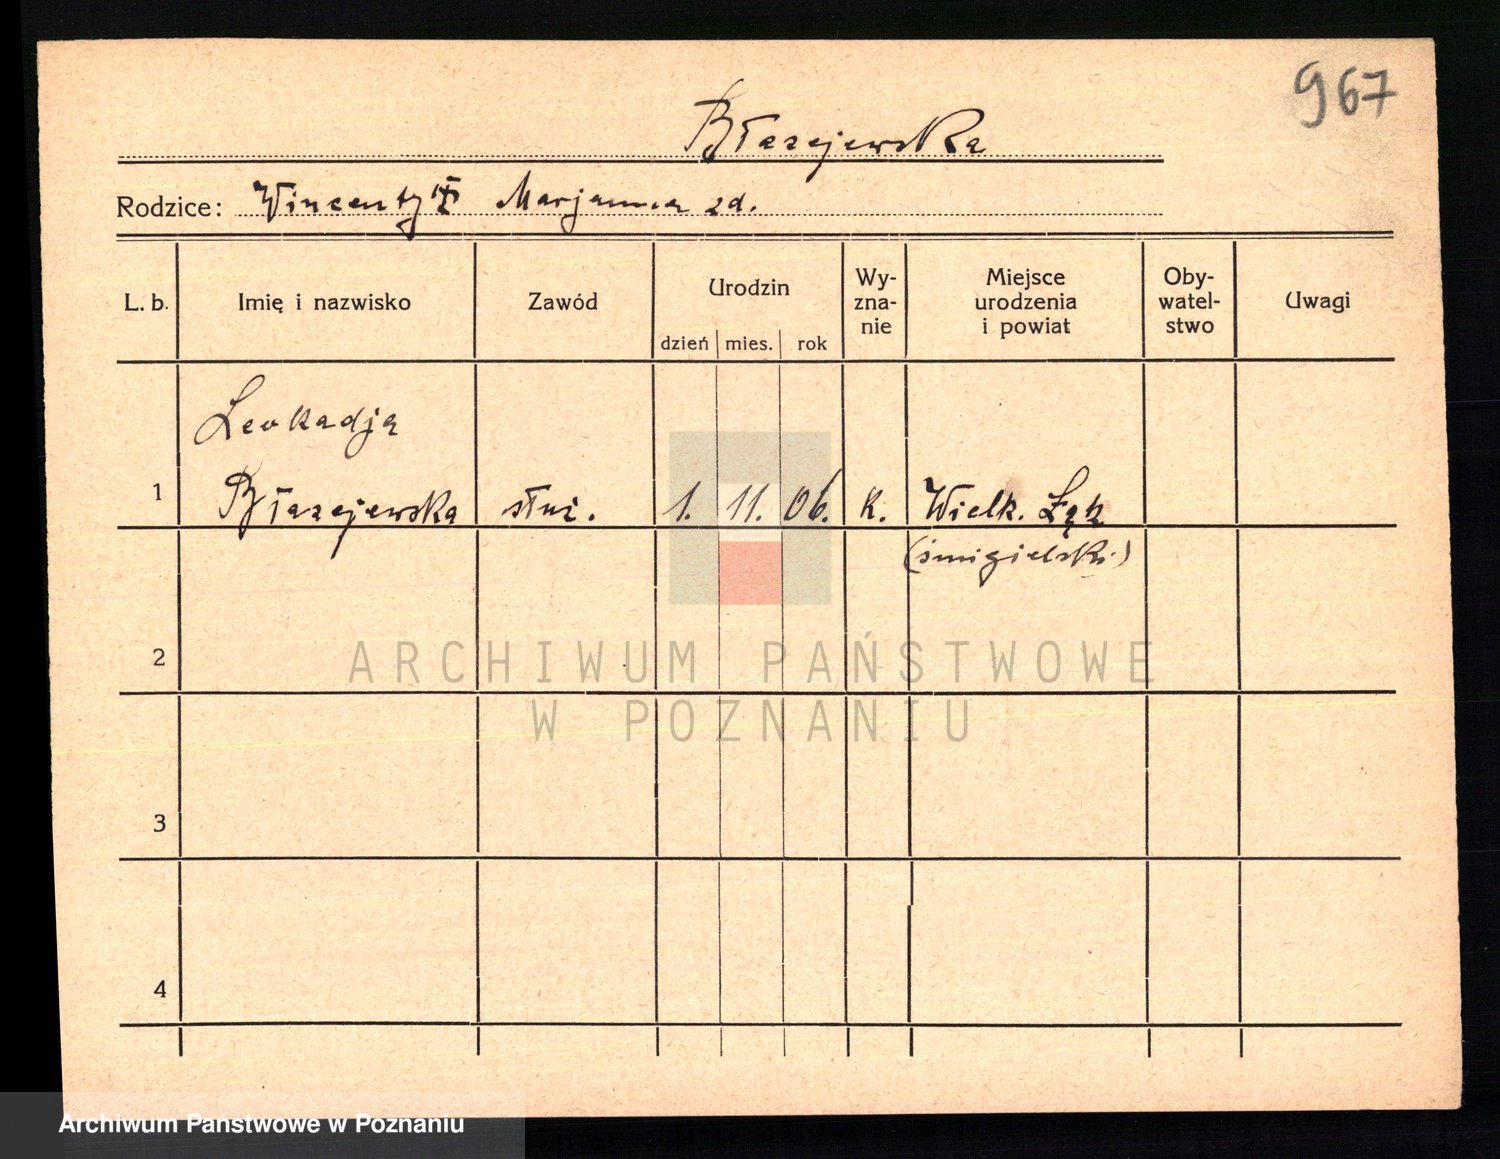 967
Błazejewska
Rodzice: Wincenty Marjanna zd.
L. b. Imię i nazwisko Zawód Urodzin Wy-zna-nie Miejsce urodzenia i powiat Oby-watel-stwo Uwagi
dzień mies. rok
Leokadja
1 Błazejewska służ. 1. 11. 06. k. Wielk. Łąk
(śmigielski)
2
ARCHIWUM PAŃSTWOWE
W POZNANIU
3
4
Archiwum Państwowe w Poznaniu